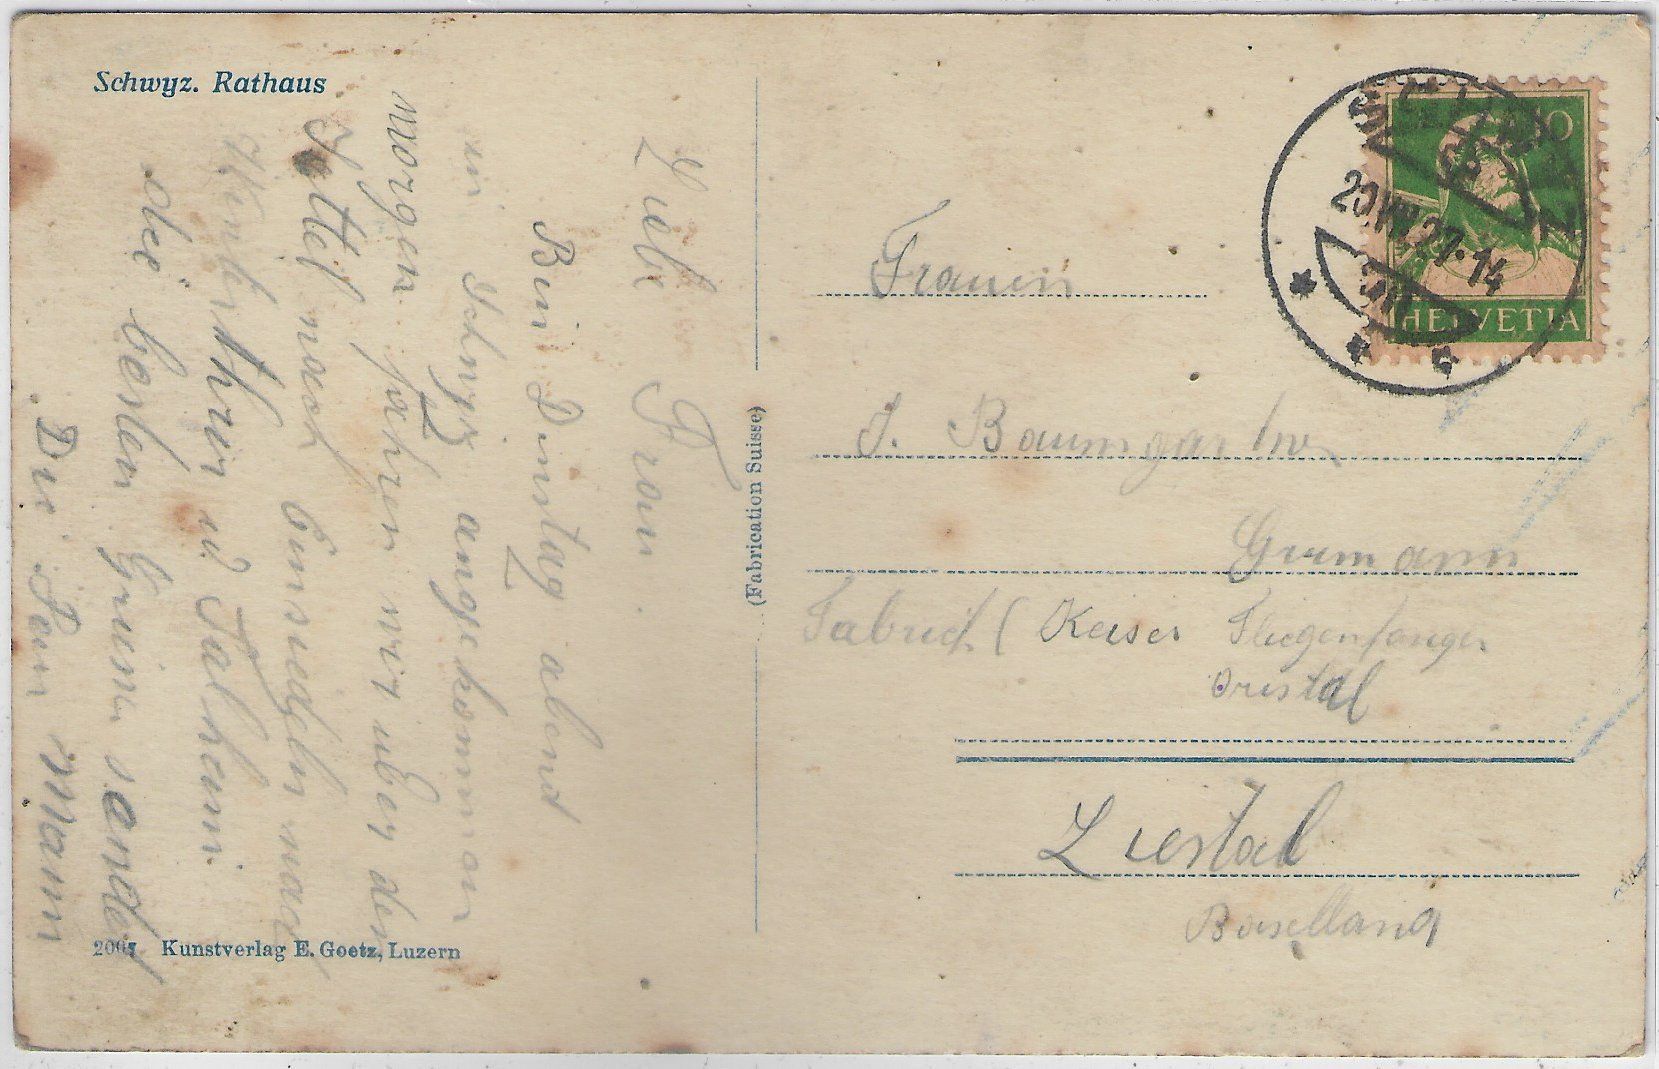 Schwyz. Rathaus
Liebe Frau.
Bin Dinstag abend
in Schwyz angekommen
morgen fahren wir uber den
Sattel nach Einsiedeln nach
thur u. Talheim.
die besten Grüsse sendet
Die Dein mann
2007 Kunstverlag E. Goetz, Luzern
(Fabrication Suisse)
10
HELVETIA
20.VII.27.14
Frauen
J. Baumgartner
Germann
Fabrick (Keiser Fliegenfanger
Oristal
Liestal
Baselland